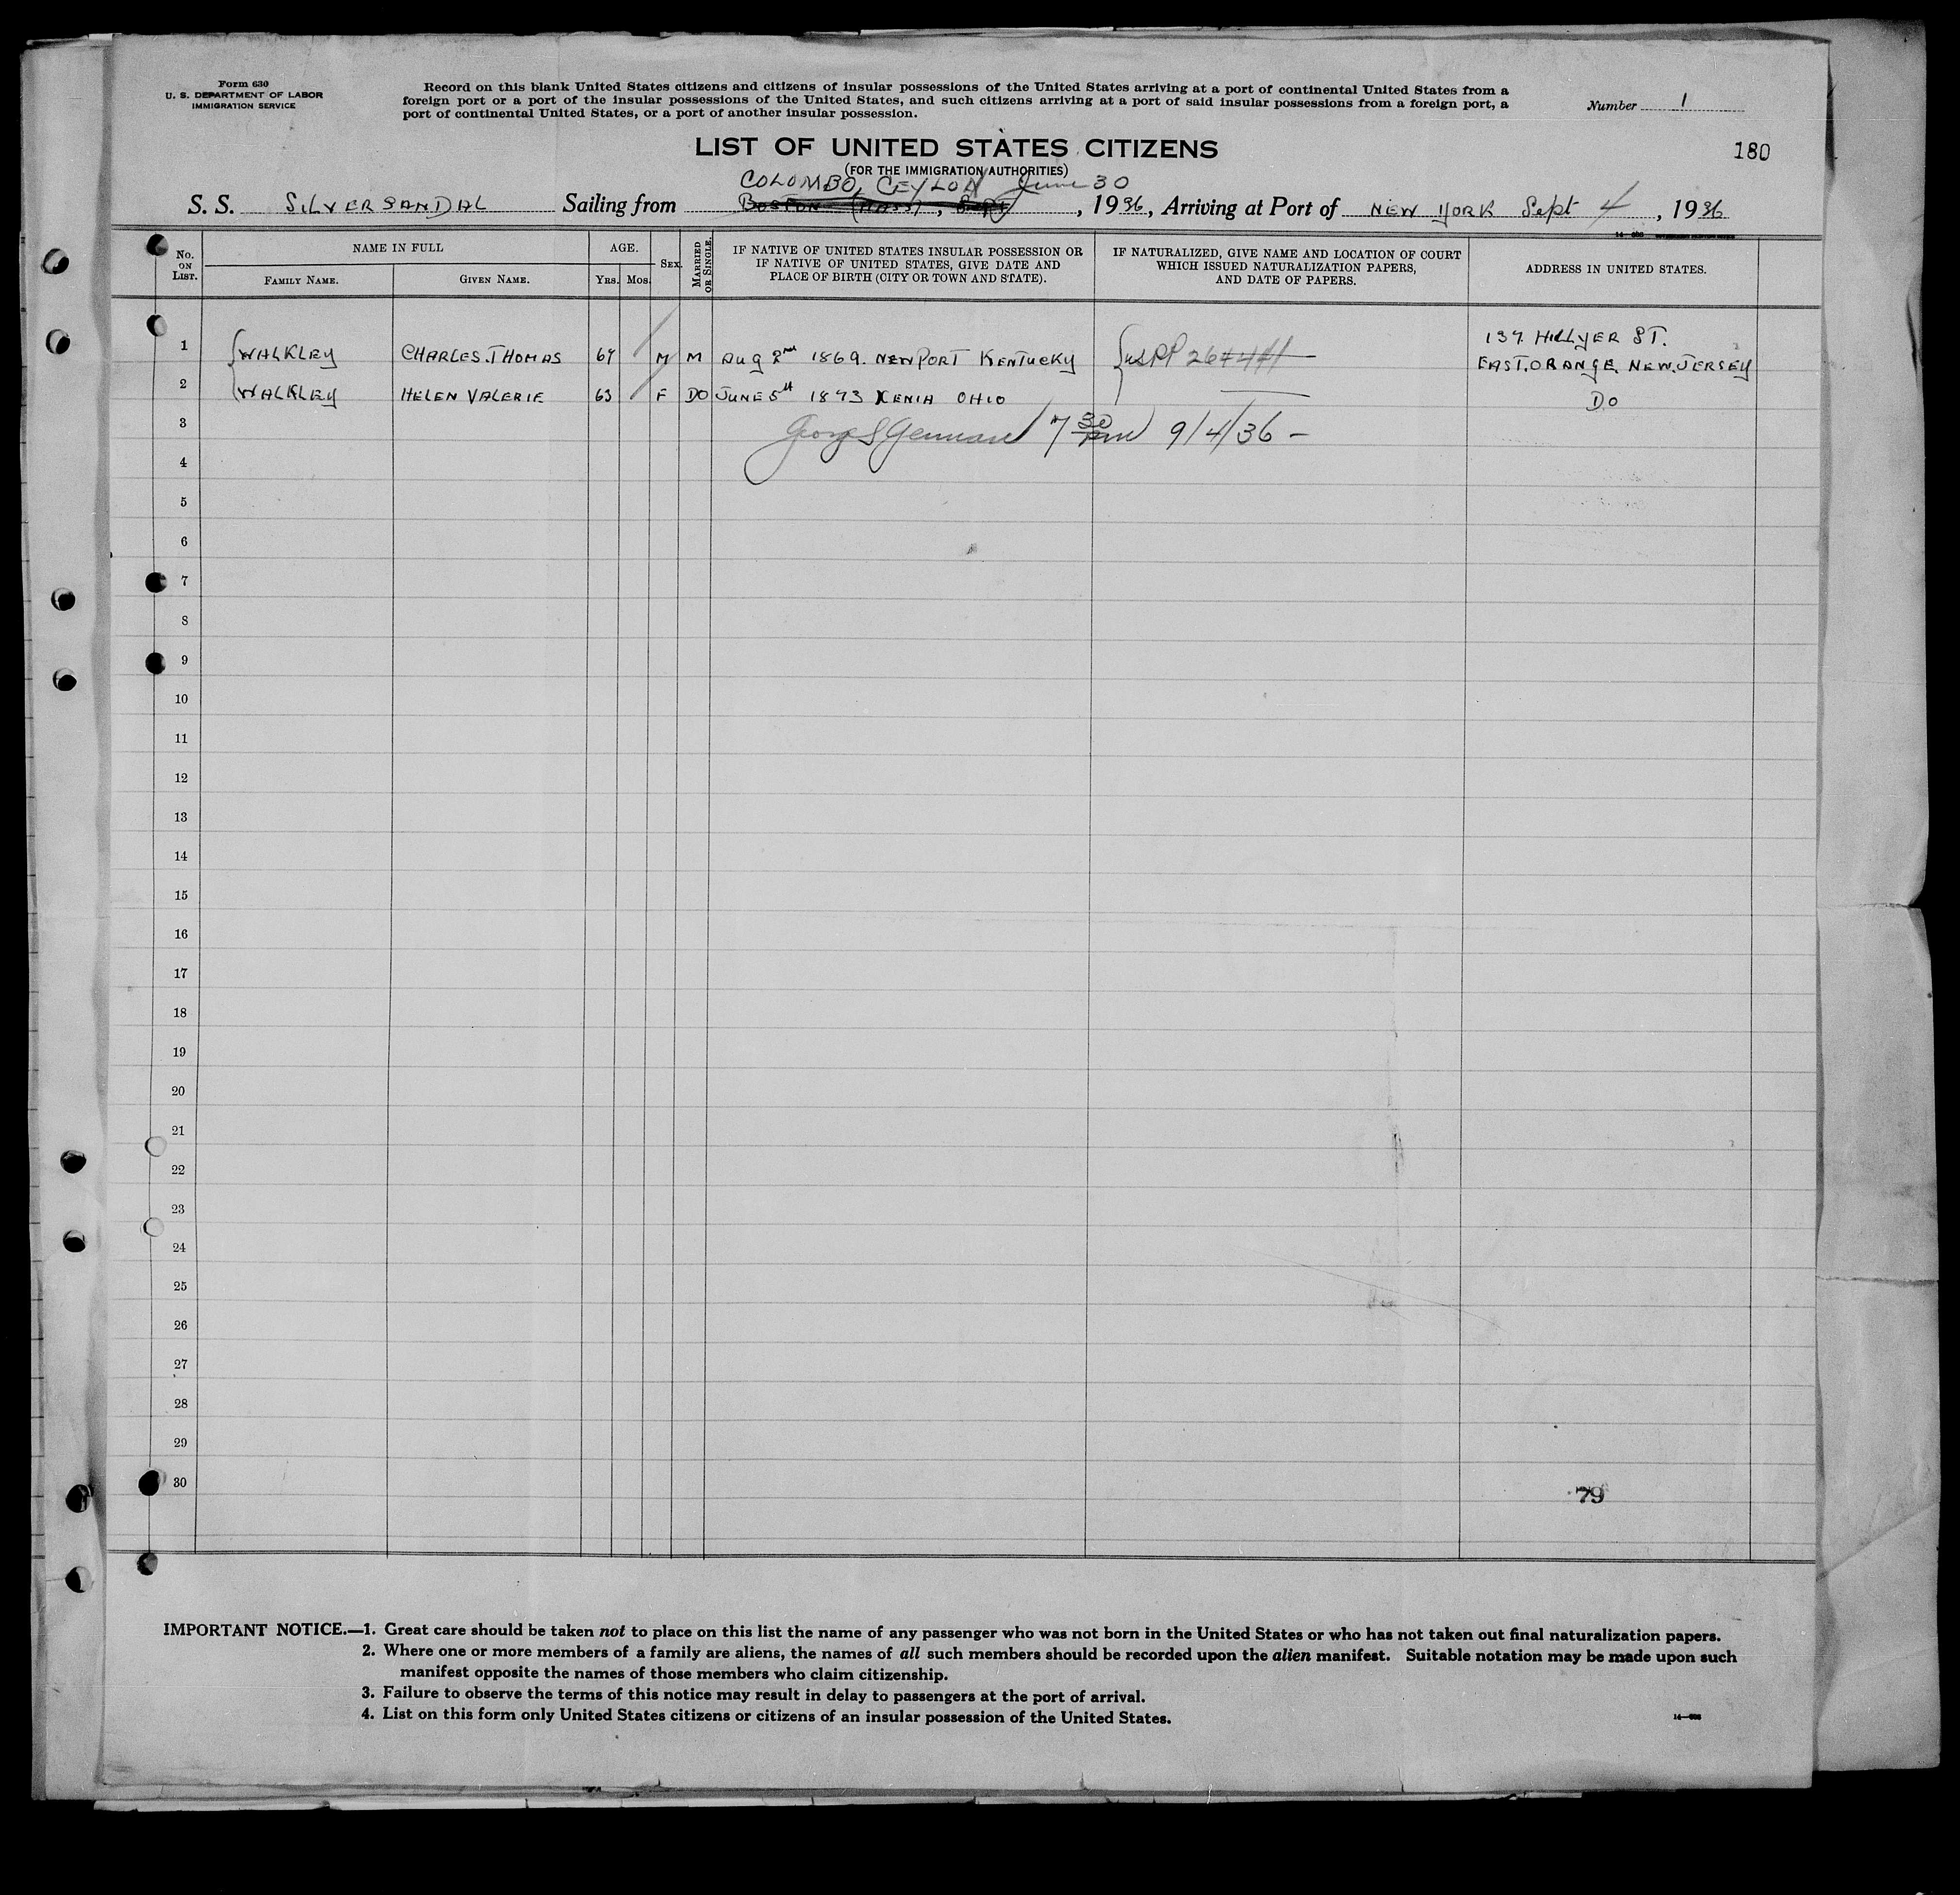 Form 630
U. S. DEPARTMENT OF LABOR
IMMIGRATION SERVICE
Record on this blank United States citizens and citizens of insular possessions of the United States arriving at a port of continental United States from a
foreign port or a port of the insular possessions of the United States, and such citizens arriving at a port of said insular possessions from a foreign port, a
port of continental United States, or a port of another insular possession.
Number 1
180
LIST OF UNITED STATES CITIZENS
(FOR THE IMMIGRATION AUTHORITIES)
COLOMBO, CEYLON June 30
S. S. SILVERSANDAL Sailing from BOSTON (MASS), SEPT, 1936, Arriving at Port of NEW YORK Sept 4, 1936
No. ON LIST.
NAME IN FULL
FAMILY NAME.
GIVEN NAME.
AGE.
YRS. MOS.
SEX.
MARRIED OR SINGLE.
IF NATIVE OF UNITED STATES INSULAR POSSESSION OR
IF NATIVE OF UNITED STATES, GIVE DATE AND
PLACE OF BIRTH (CITY OR TOWN AND STATE).
IF NATURALIZED, GIVE NAME AND LOCATION OF COURT
WHICH ISSUED NATURALIZATION PAPERS,
AND DATE OF PAPERS.
ADDRESS IN UNITED STATES.
137 HILLYER ST.
1 WALKLEY CHARLES.THOMAS 67 M M AUG 2nd 1869. NEWPORT KENTUCKY USPP EAST.ORANGE. NEW.JERSEY
2 WALKLEY HELEN VALERIE 63 F DO JUNE 5th 1873 XENIA OHIO DO
3 7 30 pm 9/4/36 –
4
5
6
7
8
9
10
11
12
13
14
15
16
17
18
19
20
21
22
23
24
25
26
27
28
29
30
79
IMPORTANT NOTICE.—1. Great care should be taken not to place on this list the name of any passenger who was not born in the United States or who has not taken out final naturalization papers.
2. Where one or more members of a family are aliens, the names of all such members should be recorded upon the alien manifest. Suitable notation may be made upon such
manifest opposite the names of those members who claim citizenship.
3. Failure to observe the terms of this notice may result in delay to passengers at the port of arrival.
4. List on this form only United States citizens or citizens of an insular possession of the United States.